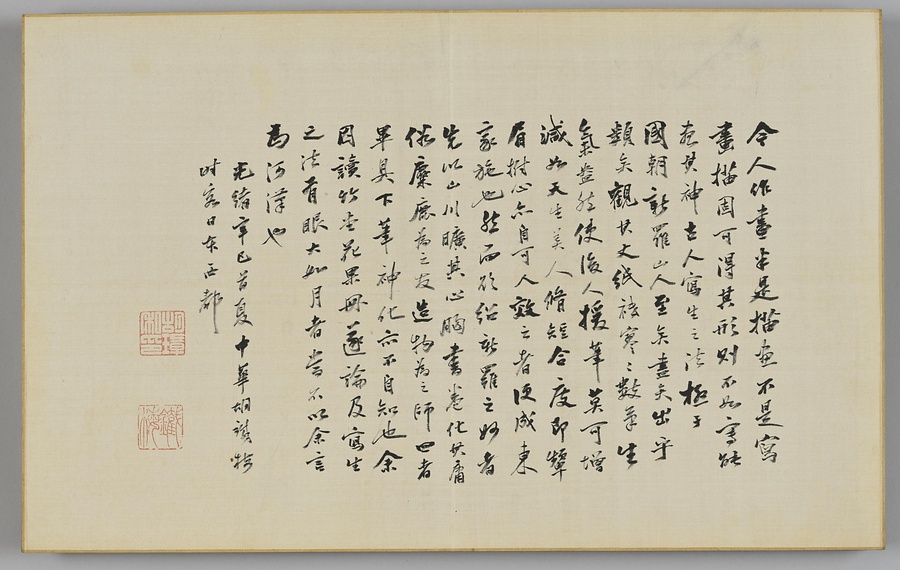 今人作畫半是描畫不是寫
畫描固可得其形則不如寫能
奪其神古人寫生之法極于
國朝新羅山人至矣盡矣出乎
類矣觀其丈紙祗寒〻數筆生
氣盎然使後人援筆莫可增
減如天生美人脩短合度即顰
眉捧心亦自可人效之者便成東
家施也然而欲紹新羅之妙者
先以山川曠其心胸書卷化其庸
俗麋鹿為之友造物為之師四者
畢具下筆神化亦不自知也余
因讀竹堂花果冊遂論及寫生
之法有眼大如月者當不以余言
為河漢也
光緒辛巳首夏中華胡璋
時客日本西都
胡璋
鐵梅